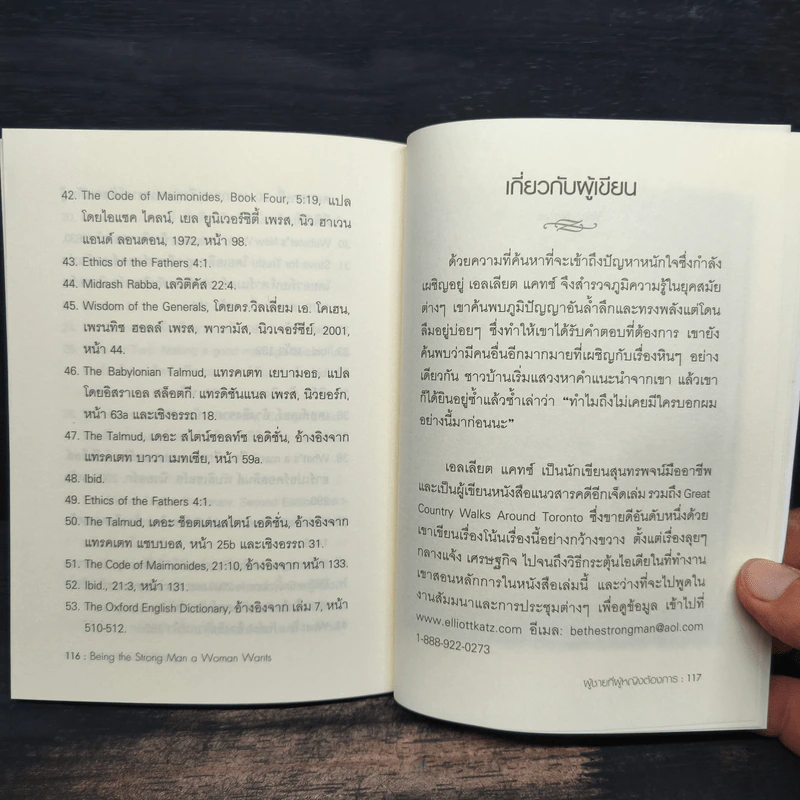 42. The Code of Maimonides, Book Four, 5:19, แปล
โดยไอแซค ไคลน์, เยล ยูนิเวอร์ซิตี้ เพรส, นิว ฮาเวน
แอนด์ ลอนดอน, 1972, หน้า 98.
43. Ethics of the Fathers 4:1.
44. Midrash Rabba, เลวิติคัส 22:4.
45. Wisdom of the Generals, โดยดร.วิลเลี่ยม เอ. โคเฮน,
เพรนทิซ ฮอลล์ เพรส, พารามัส, นิวเจอร์ซีย์, 2001,
หน้า 44.
46. The Babylonian Talmud, แทรคเตท เยบามอธ, แปล
โดยอิสราเอล สล็อตกี. แทรดิชันแนล เพรส, นิวยอร์ก,
หน้า 63a และเชิงอรรถ 18.
47. The Talmud, เดอะ สไตน์ซอลท์ซ เอดิชั่น, อ้างอิงจาก
แทรคเตท บาวา เมทเซีย, หน้า 59a.
48. Ibid.
49. Ethics of the Fathers 4:1.
50. The Talmud, เดอะ ช็อตเตนสไตน์ เอดิชั่น, อ้างอิงจาก
แทรคเตท แชบบอส, หน้า 25b และเชิงอรรถ 31.
51. The Code of Maimonides, 21:10, อ้างอิงจาก หน้า 133.
52. Ibid., 21:3, หน้า 131.
53. The Oxford English Dictionary, อ้างอิงจาก เล่ม 7, หน้า
510-512.
116 : Being the Strong Man a Woman Wants
เกี่ยวกับผู้เขียน
ด้วยความที่ค้นหาที่จะเข้าถึงปัญหาหนักใจซึ่งกำลัง
เผชิญอยู่ เอลเลียต แคทซ์ จึงสำรวจภูมิความรู้ในยุคสมัย
ต่างๆ เขาค้นพบภูมิปัญญาอันล้ำลึกและทรงพลังแต่โดน
ลืมอยู่บ่อยๆ ซึ่งทำให้เขาได้รับคำตอบที่ต้องการ เขายัง
ค้นพบว่ามีคนอื่นอีกมากมายที่เผชิญกับเรื่องหินๆ อย่าง
เดียวกัน ชาวบ้านเริ่มแสวงหาคำแนะนำจากเขา แล้วเขา
ก็ได้ยินอยู่ซ้ำแล้วซ้ำเล่าว่า “ทำไมถึงไม่เคยมีใครบอกผม
อย่างนี้มาก่อนนะ”
เอลเลียต แคทซ์ เป็นนักเขียนสุนทรพจน์มืออาชีพ
และเป็นผู้เขียนหนังสือแนวสารคดีอีกเจ็ดเล่ม รวมถึง Great
Country Walks Around Toronto ซึ่งขายดีอันดับหนึ่งด้วย
เขาเขียนเรื่องโน้นเรื่องนี้อย่างกว้างขวาง ตั้งแต่เรื่องลุยๆ
กลางแจ้ง เศรษฐกิจ ไปจนถึงวิธีกระตุ้นไอเดียในที่ทำงาน
เขาสอนหลักการในหนังสือเล่มนี้ และว่างที่จะไปพูดใน
งานสัมมนาและการประชุมต่างๆ เพื่อดูข้อมูล เข้าไปที่
www.elliottkatz.com อีเมล: bethestrongman@aol.com
1-888-922-0273
ผู้ชายที่ผู้หญิงต้องการ : 117